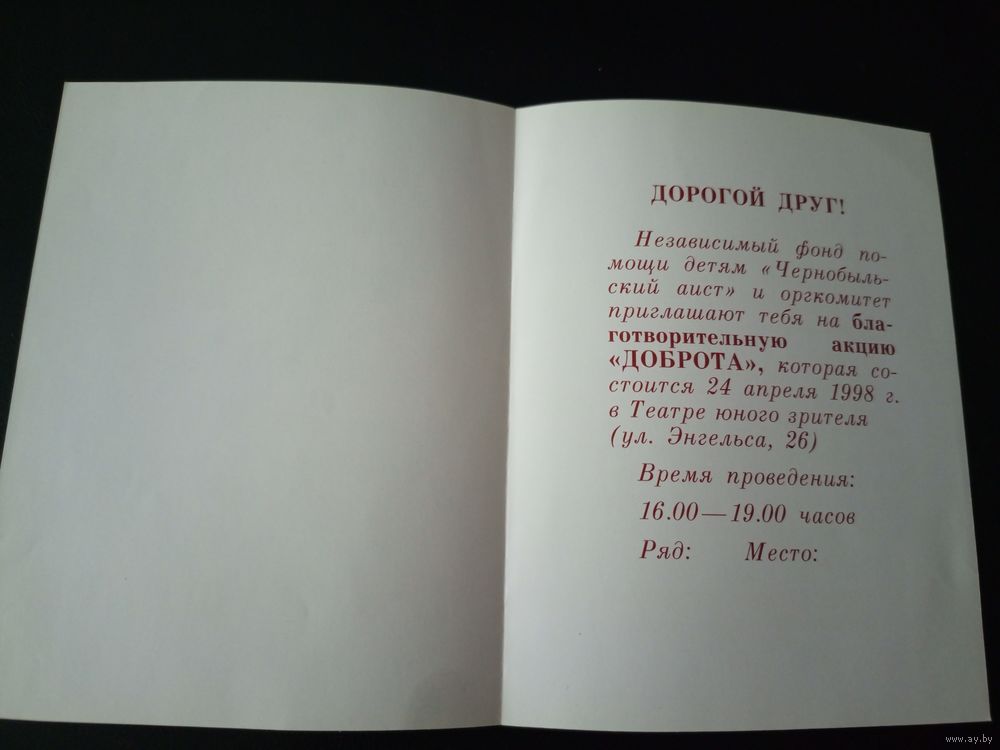 ДОРОГОЙ ДРУГ!
Независимый фонд по-
мощи детям «Чернобыль-
ский аист» и оргкомитет
приглашают тебя на бла-
готворительную акцию
«ДОБРОТА», которая со-
стоится 24 апреля 1998 г.
в Театре юного зрителя
(ул. Энгельса, 26)
Время проведения:
16.00—19.00 часов
Ряд: Место:
www.ay.by